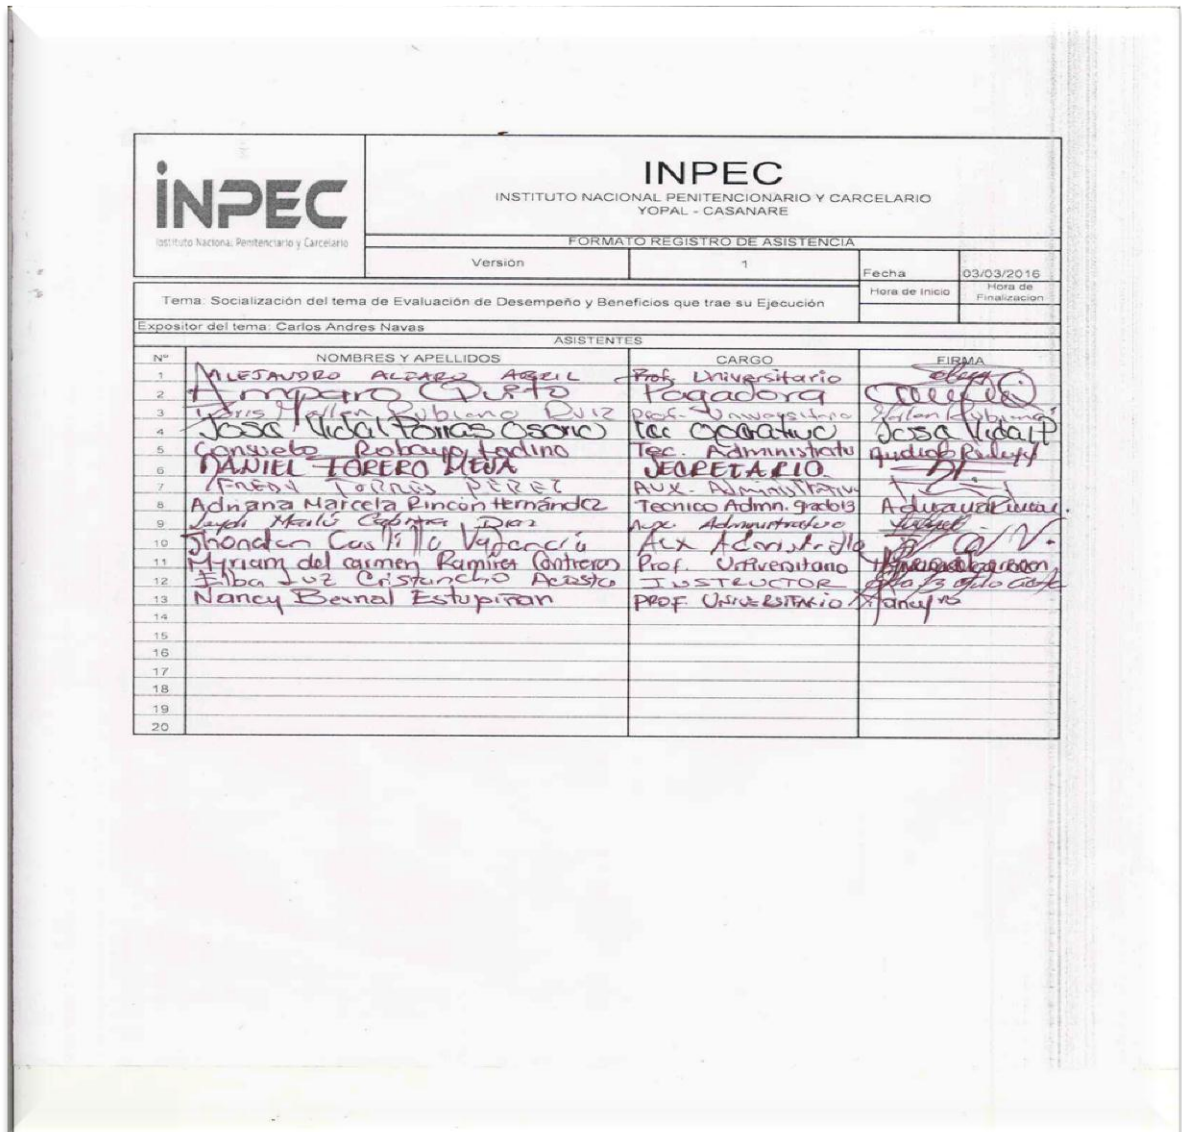 INPEC
Instituto Nacional Penitenciario y Carcelario
INPEC
INSTITUTO NACIONAL PENITENCIONARIO Y CARCELARIO
YOPAL - CASANARE
FORMATO REGISTRO DE ASISTENCIA
Versión 1 Fecha 03/03/2016
Tema: Socialización del tema de Evaluación de Desempeño y Beneficios que trae su Ejecución
Hora de Inicio Hora de Finalizacion
Expositor del tema: Carlos Andres Navas
ASISTENTES
N° NOMBRES Y APELLIDOS CARGO FIRMA
1 ALEJANDRO ALFARO ABRIL Prof. Universitario
2 Amparo Quito Pagadora
3 Doris Mallen Rubiano Ruiz Prof. Universitario Mallen Rubiano
4 Jose Vidal Porras Osorio Tec Operativo Jose Vidal P
5 Consuelo Robayo Tec. Administrativ
6 DANIEL TORERO MEJIA SECRETARIO
7 FREDY TORRES PEREZ AUX. Administrativo
8 Adriana Marcela Rincón Hernández Tecnico Admn. grado13 Adriana Rincon.
9 Leydi Cabrera Diaz Aux Administrativo
10 Jhondan Castillo Valencia Aux
11 Myriam del carmen Ramirez Contreras Prof. Universitario
12 Elba Luz Cristancho Acosta INSTRUCTOR
13 Nancy Bernal Estupiñan PROF. UNIVERSITARIO Nancy
14
15
16
17
18
19
20